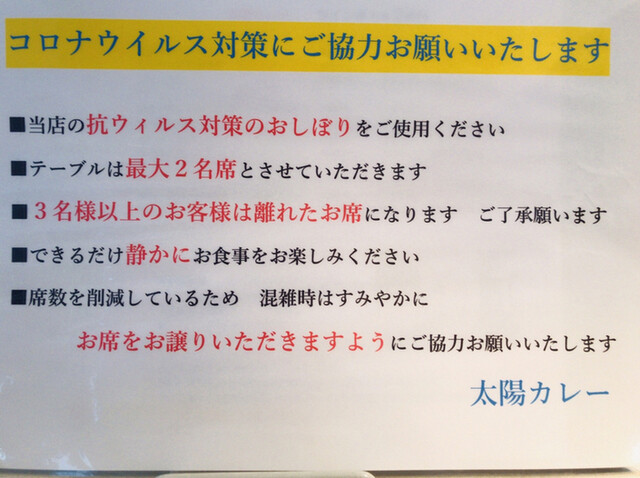 コロナウイルス対策にご協力お願いいたします
■当店の抗ウィルス対策のおしぼりをご使用ください
■テーブルは最大２名席とさせていただきます
■３名様以上のお客様は離れたお席になります　ご了承願います
■できるだけ静かにお食事をお楽しみください
■席数を削減しているため　混雑時はすみやかに
お席をお譲りいただきますようにご協力お願いいたします
太陽カレー